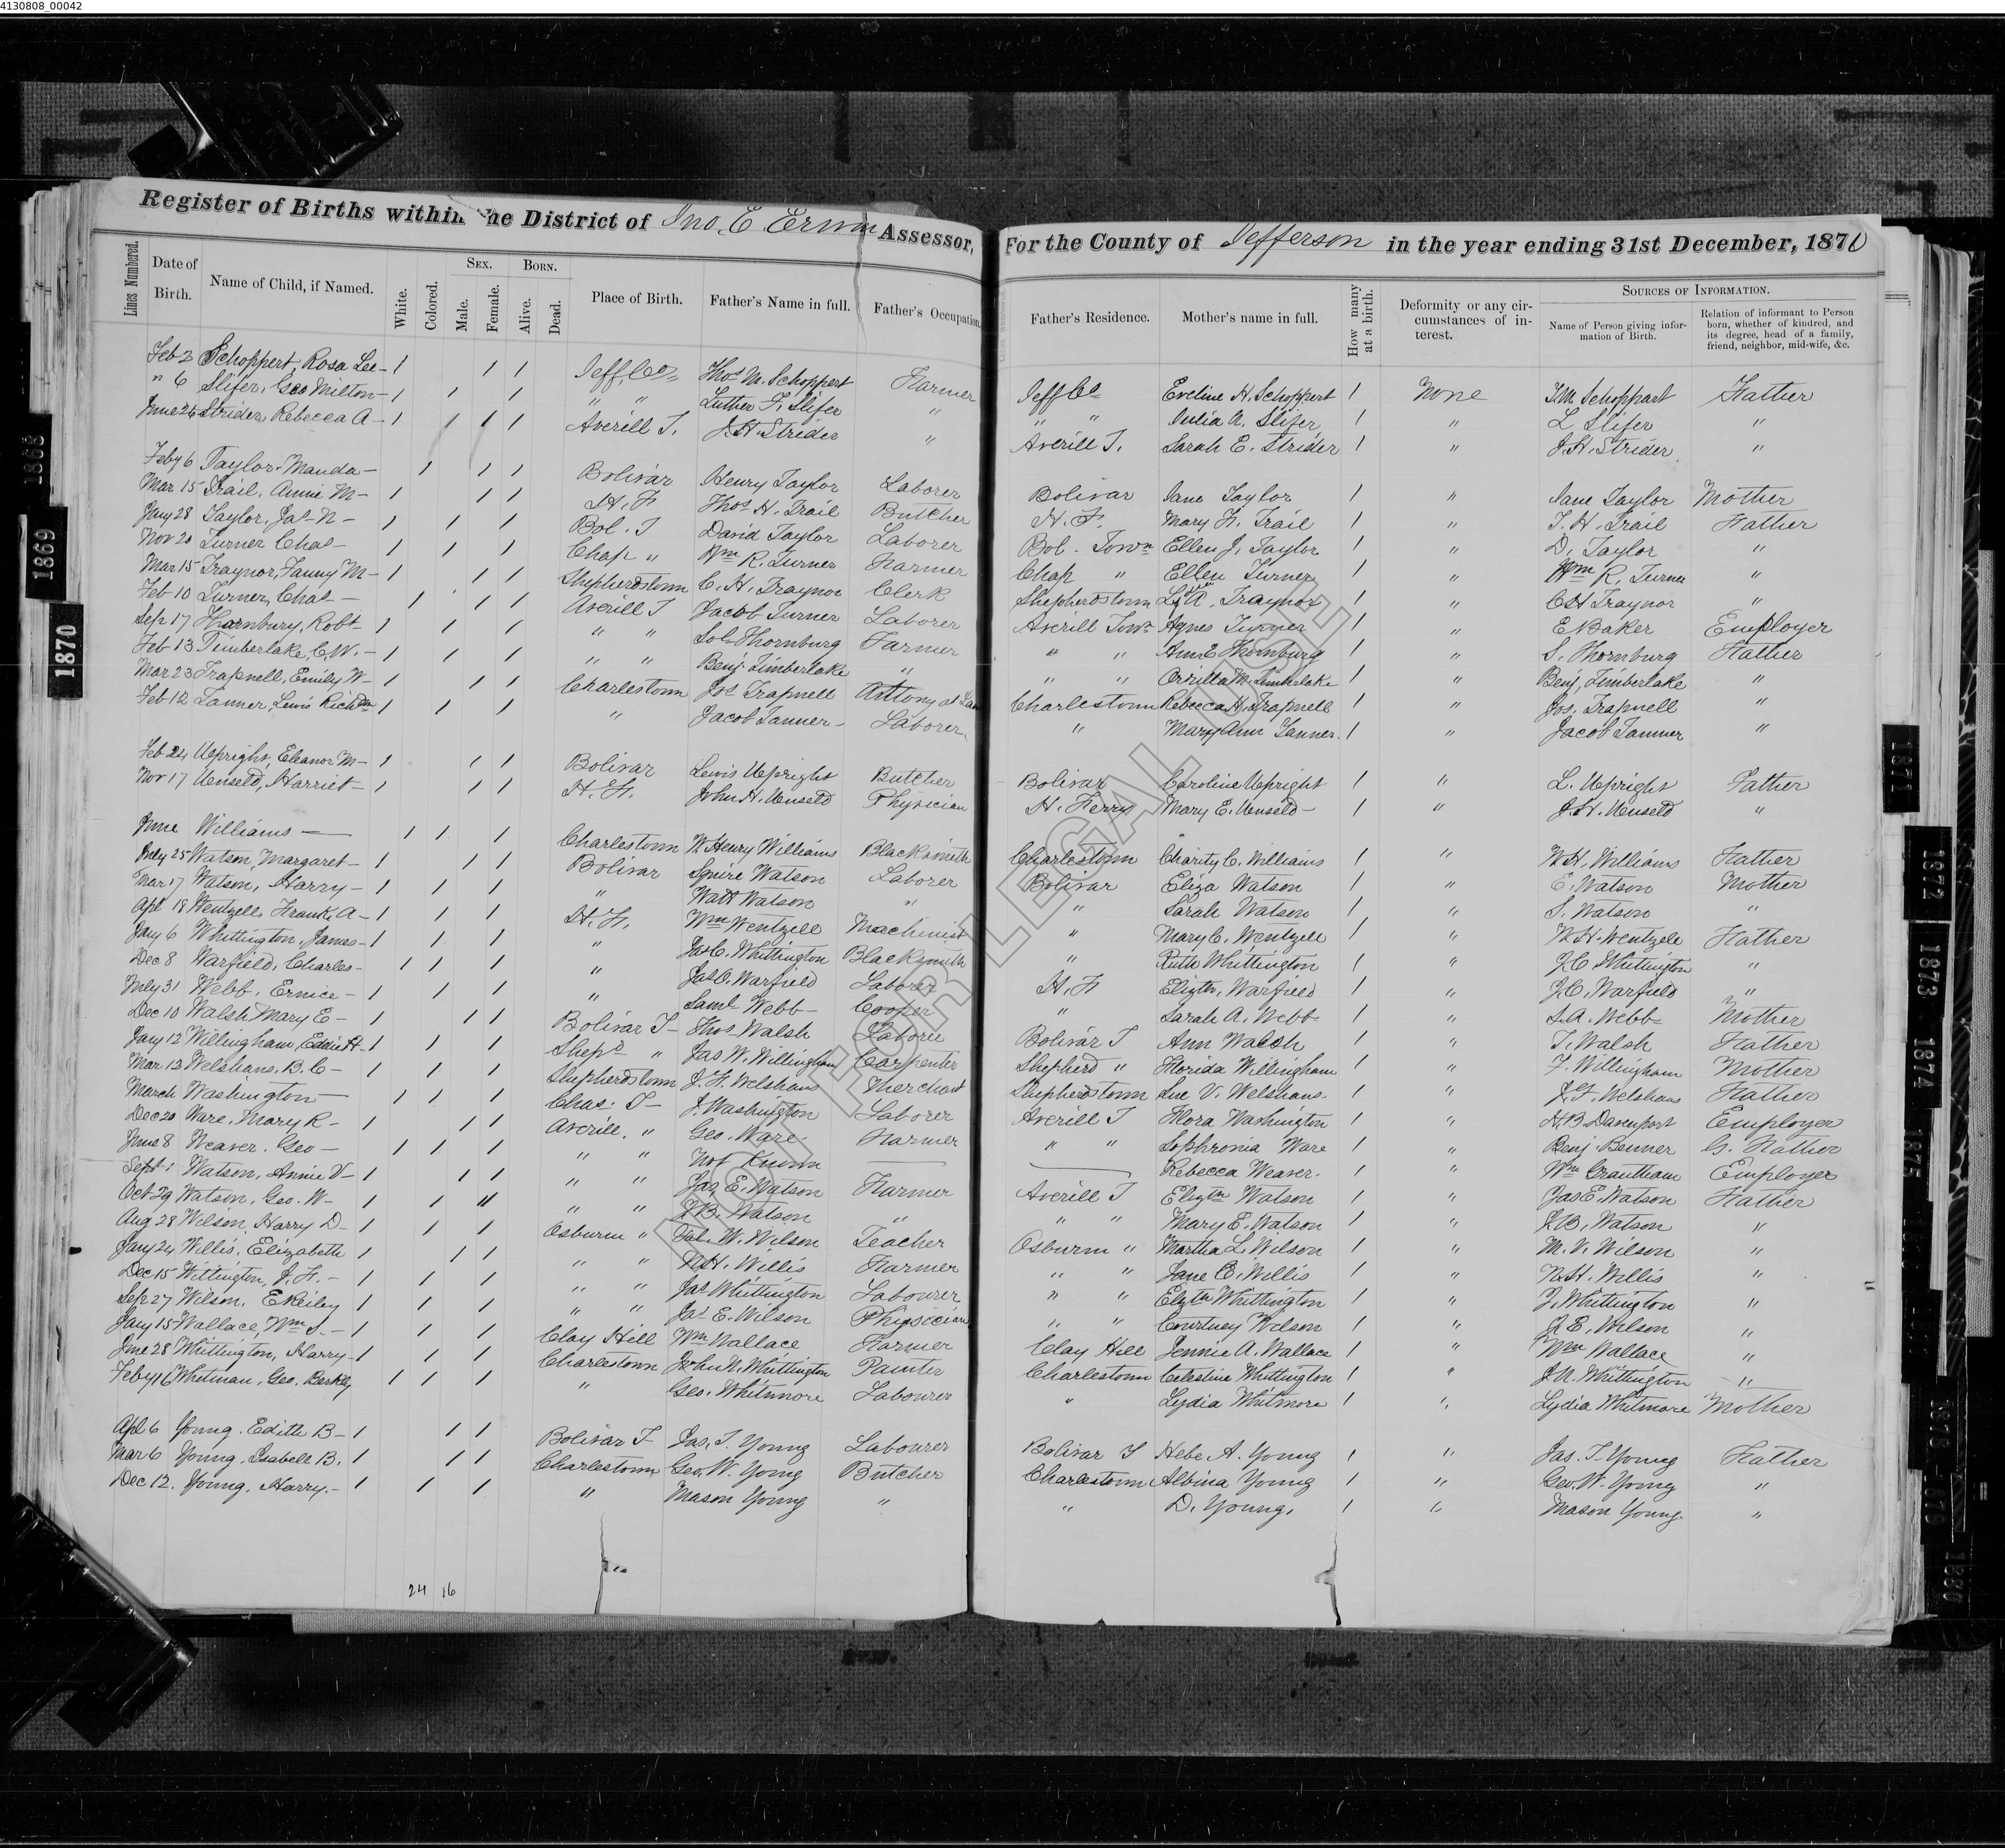 4130808_00042
Register of Births within the District of Jno. E. Erwin Assessor, For the County of Jefferson in the year ending 31st December, 1870
Lines Numbered. Date of Birth. Name of Child, if Named. White. Colored. SEX. Male. Female. BORN. Alive. Dead. Place of Birth. Father's Name in full. Father's Occupation. Father's Residence. Mother's name in full. How many at a birth. Deformity or any circumstances of interest. SOURCES OF INFORMATION. Name of Person giving information of Birth. Relation of informant to Person born, whether of kindred, and its degree, head of a family, friend, neighbor, mid-wife, &c.
Feb 2 Schoppert, Rosa Lee - 1 1 1 Jeff. Co. Thos M. Schoppert Farmer Jeff Co Eveline H. Schoppert 1 None T.M. Schoppart Father
" 6 Slifer, Geo Milton - 1 1 1 " " Luther F. Slifer " " " Julia A. Slifer 1 " L Slifer "
June 26 Strider, Rebecca A - 1 1 1 1 Averill T. J.H. Strider " Averill T. Sarah E. Strider 1 " J.H. Strider "
Feby 6 Taylor. Manda - 1 1 1 Bolivar Henry Taylor Laborer Bolivar Jane Taylor 1 " Jane Taylor Mother
Mar 15 Trail. Annie M - 1 1 1 H. F. Thos H. Trail Butcher H. F. Mary F. Trail 1 " T. H. Trail Father
Jany 28 Taylor, Jas N - 1 1 1 Bol. T David Taylor Laborer Bol. Town Ellen J. Taylor 1 " D. Taylor "
Nov 20 Turner Chas - 1 1 1 Chap " Wm R. Turner Farmer Chap " Ellen Turner 1 " Wm R. Turner "
Mar 15 Traynor, Fanny M - 1 1 1 Shepherdstown C. H. Traynor Clerk Shepherdstown Traynor 1 " C H Traynor "
Feb 10 Turner, Chas - 1 1 1 Averill T Jacob Turner Laborer Averill Town Agnes Turner 1 " E Baker Employer
Sep 17 Thornbury, Robt - 1 1 1 " " Sol Thornburg Farmer " " Ann E Thornburg 1 " S. Thornburg Father
Feb 13 Timberlake, C.W. - 1 1 1 " " Benj Timberlake " " " Timberlake 1 " Benj. Timberlake "
Mar 23 Trapnell, Emily W - 1 1 1 Charlestown Jos Trapnell Attorny at Law Charlestown Rebecca H. Trapnell 1 " Jos. Trapnell "
Feb 12 Tanner, Lewis Richd 1 1 1 " Jacob Tanner - Laborer " Mary Ann Tanner. 1 " Jacob Tanner "
Feb 24 Upright, Eleanor M - 1 1 1 Bolivar Lewis Upright Butcher Bolivar Caroline Upright 1 " L. Upright Father
Nov 17 Unseld, Harriet - 1 1 1 H. F. John H. Unseld Physician H. Ferry Mary E. Unseld - 1 " J.H. Unseld "
June Williams - 1 1 1 Charlestown W. Henry Williams Blacksmith Charlestown Charity C. Williams 1 " W.H. Williams Father
July 25 Watson, Margaret - 1 1 1 Bolivar Squire Watson Laborer Bolivar Eliza Watson 1 " E. Watson Mother
Mar 17 Watson, Harry - 1 1 1 " Watt Watson " " Sarah Watson 1 " S. Watson "
Apl 18 Wentzell, Frank A - 1 1 1 H. F. Wm Wentzell Machinist " Mary C. Wentzell 1 " W.H. Wentzele Father
Jany 6 Whittington, James - 1 1 1 " Jas C. Whittington Blacksmith " Ruth Whittington 1 " J.C. Whittington "
Dec 8 Warfield, Charles - 1 1 1 " Jas C. Warfield Laborer H. F Elizth. Warfield 1 " J.C. Warfield "
July 31 Webb. Ernice - 1 1 1 " Saml Webb - Cooper " Sarah A. Webb 1 " S.A. Webb Mother
Dec 10 Walsh Mary E - 1 1 1 Bolivar T - Thos Walsh Laborer Bolivar T Ann Walsh 1 " T. Walsh Father
Jany 12 Willingham, Eddie H - 1 1 1 Shepd " Jas W. Willingham Carpenter Shepherd " Florida Willingham 1 " F. Willingham Mother
Mar 12 Welshans. B. C - 1 1 1 Shepherdstown J. F. Welshans Merchant Shepherdstown Sue V. Welshans 1 " J.F. Welshans Father
March Washington - 1 1 1 Chas. T - J. Washington Laborer Averill T Flora Washington 1 " H.B. Davenport Employer
Dec 20 Ware. Mary R - 1 1 1 Averill. " Geo. Ware. Farmer " " Sophronia Ware 1 " Benj. Benner G. Father
June 8 Weaver. Geo - 1 1 1 " " Not Known Rebecca Weaver. 1 " Wm Grantham Employer
Sept 1 Watson, Annie V - 1 1 1 " " Jas. E. Watson Farmer Averill T Elizth Watson 1 " Jas E. Watson Father
Oct 29 Watson. Geo. W - 1 1 " " " J.B. Watson " " " Mary E. Watson 1 " J.B. Watson "
Aug 28 Wilson, Harry D - 1 1 1 Osburn " W. Wilson Teacher Osburn " Martha L. Wilson 1 " M. V. Wilson "
Jany 24 Willis. Elizabeth 1 1 1 " " N.H. Willis Farmer " " Jane E. Willis 1 " N.H. Willis "
Dec 15 Wittington, J. F. - 1 1 1 " " Jas Whittington Labourer " " Elizth Whittington 1 " J. Whittington "
Sep 27 Wilson. E Keiley 1 1 1 " " Jas E. Wilson Physician " " Courtney Wilson 1 " J. E. Wilson "
Jany 15 Wallace, Wm S. - 1 1 1 Clay Hill Wm Wallace Farmer Clay Hill Jennie A. Wallace 1 " Wm Wallace "
June 28 Whittington, Harry - 1 1 1 Charlestown John N. Whittington Painter Charlestown Celestine Whittington 1 " J.N. Whittington "
Feby 16 Whitman, Geo. Berkly 1 1 1 " Geo. Whitmore Labourer " Lydia Whitmore 1 " Lydia Whitmore Mother
Apl 6 Young. Edith B - 1 1 1 Bolivar T Jas. T. Young Labourer Bolivar T Hebe A. Young 1 " Jas. T. Young Father
Mar 6 Young. Isabell B. 1 1 1 Charlestown Geo. W. Young Butcher Charlestown Albina Young 1 " Geo. W. Young "
Dec 12. Young. Harry. - 1 1 1 " Mason Young " " D. Young. 1 " Mason Young. "
24 16
NOT FOR LEGAL USE
1868
1869
1870
1871
1872
1873
1874
1875
1878
1879
1880